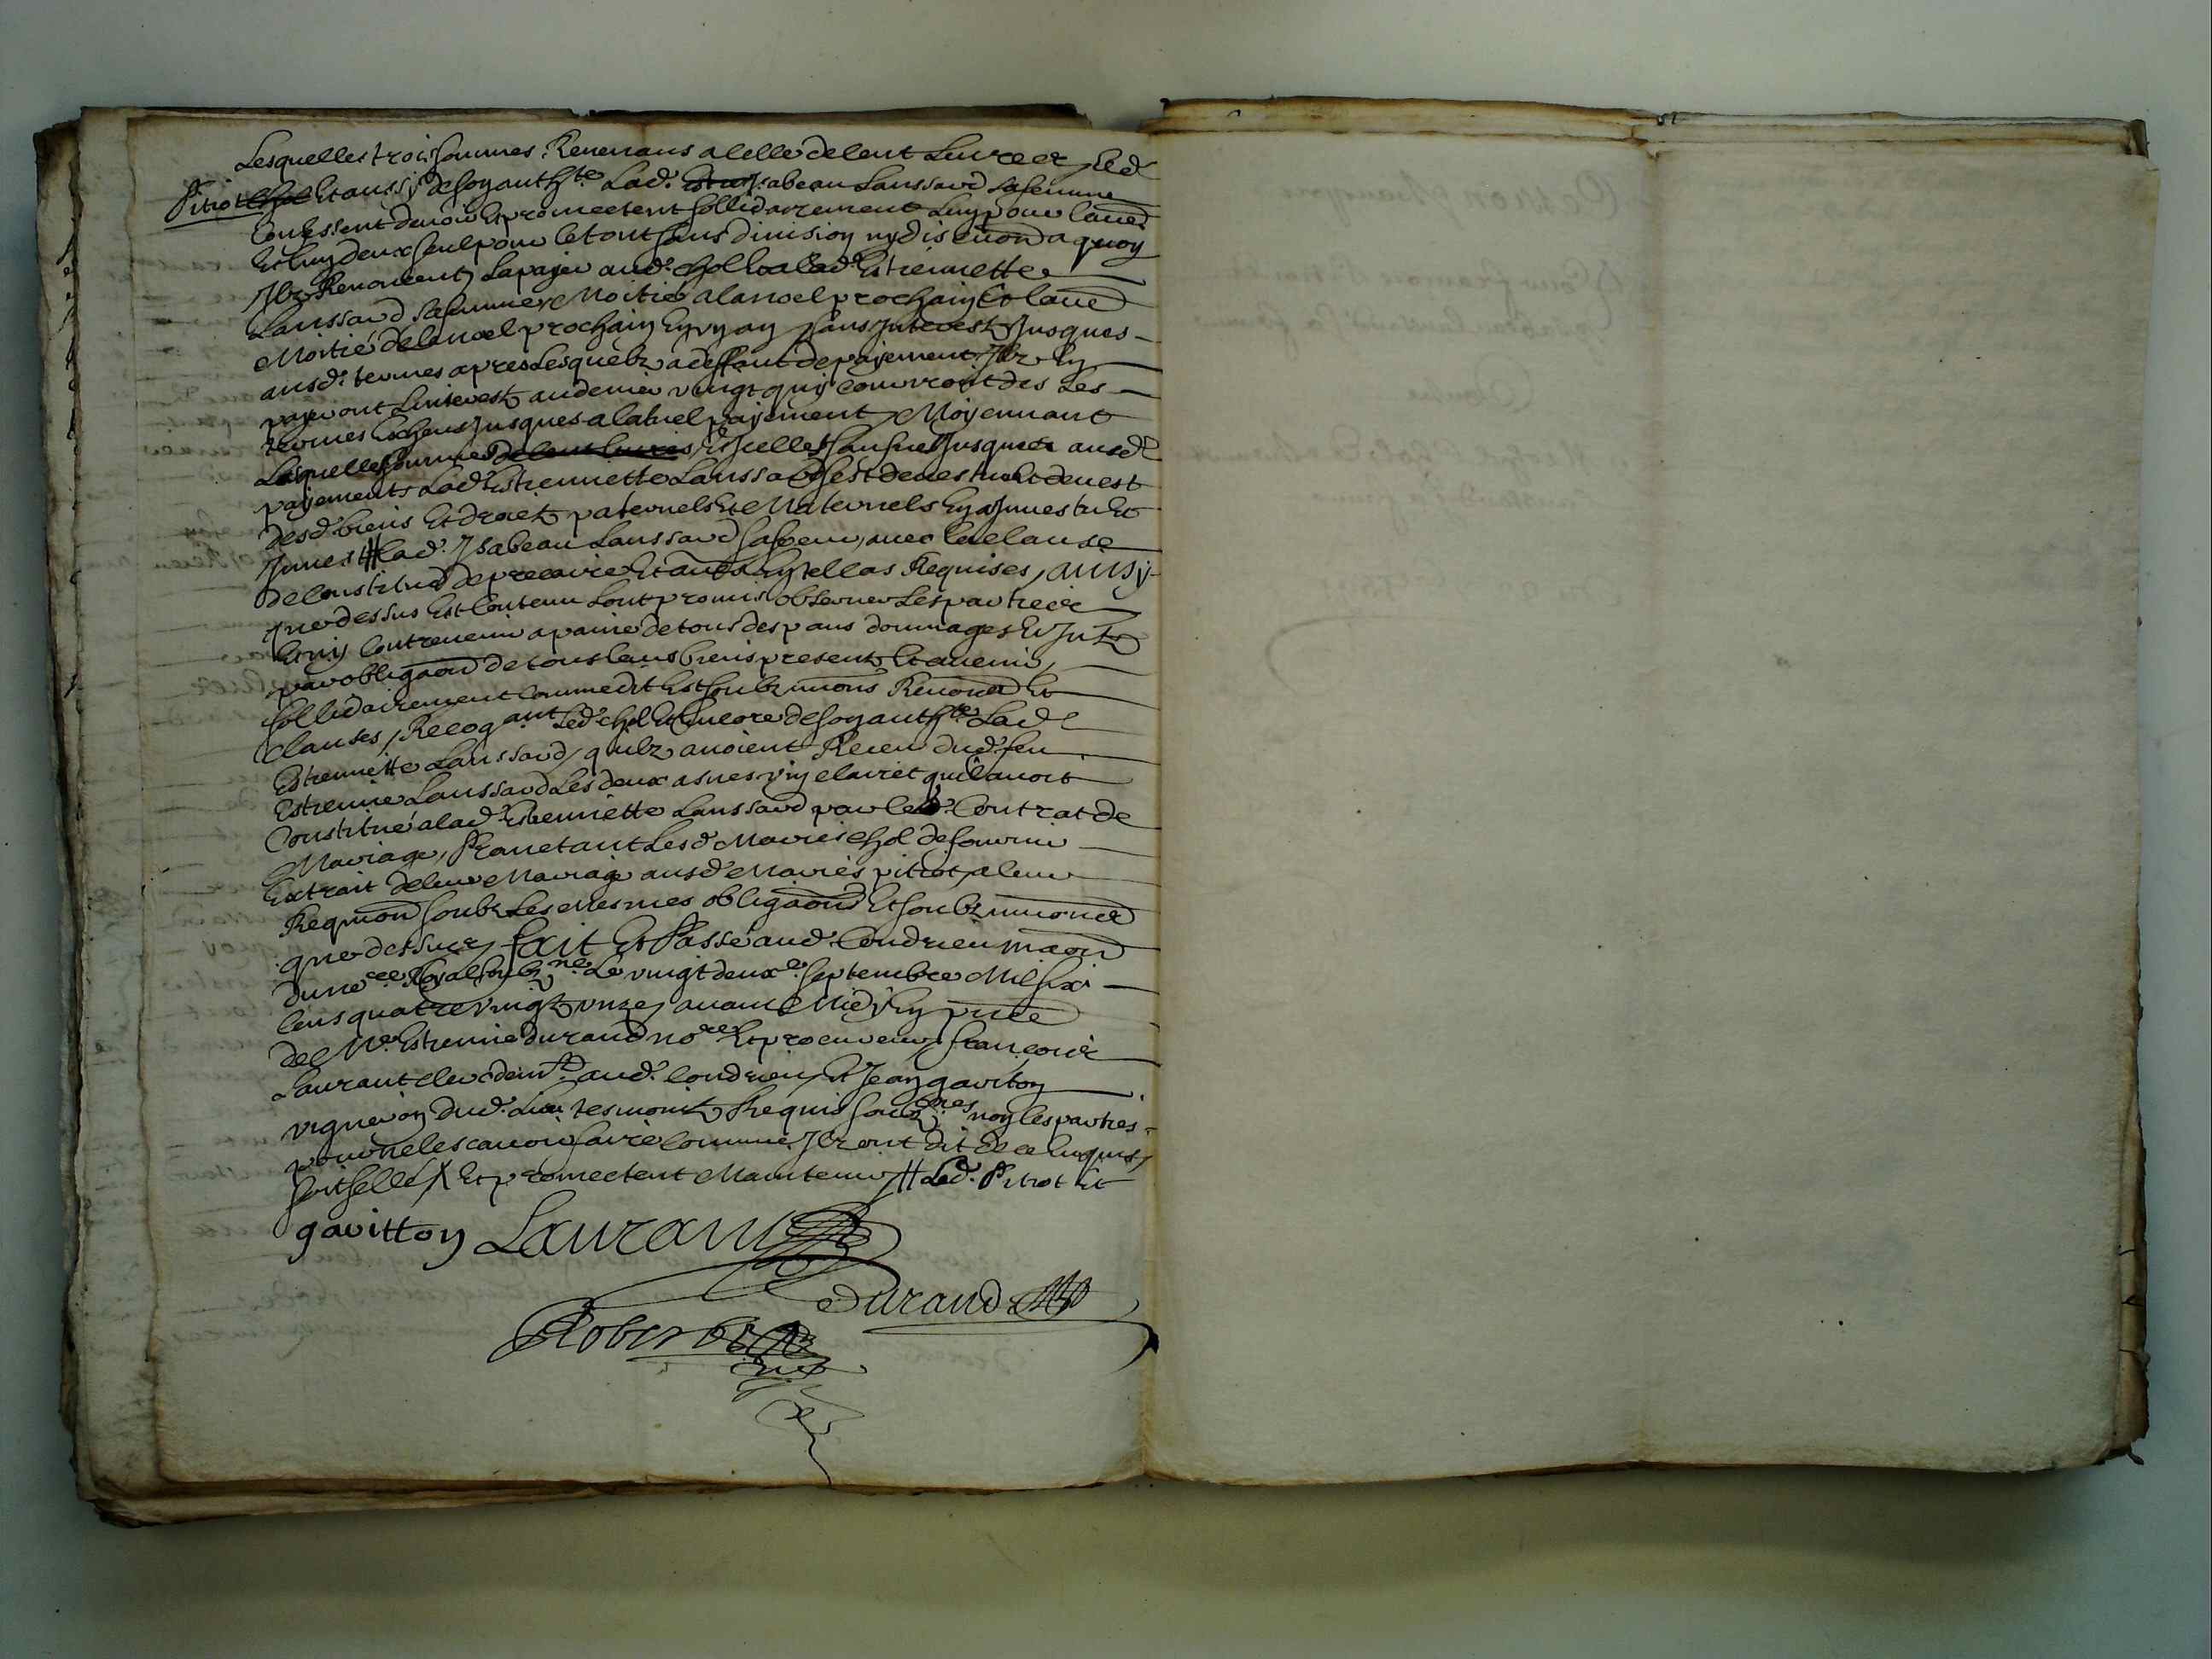 Lesquelles trois sommes Revenans a celle de cent Livres, Led.
Pitiot Chol Et aussy de son auth.te Lad. Isabeau Laussard sa femme
Confessent devoir Et promectent sollidairement Luy pour l'autre
Et lung deux seul pour le tout sans division ny discution a quoy
Ilz Renoncent, La payer aud. Chol Et a Lad. Estiennette
Laussard sa femme, Moitié a la noel prochain Et l'autre
Moitié de la noel prochain En un an sans Interest Jusques
ausd. termes apres Lesquelz a deffaut de payement Ilz En
payeront L'interest au denier vingt qui courront des Les
termes Escheus Jusques a l'actuel payement, Moyennant
Lesquelles sommes de cent livres Et Icelles sauves Jusques ausd.
payements Lad. Estiennette Laussard s'est devestue Et devest
desd. biens Et droictz paternels Et Maternels En a Investu Et
Invest # lad. Isabeau Laussard sa soeur, avec la clause
de constitution de precaire Et autres En telles Requises, ainsy
que dessus Est Contenu L'ont promis observer Les parties
Et ny Contrevenir a paine de tous despans dommages Et Intz
par obligaon de tous leurs biens presentz Et avenir,
sollidairement comme dit Est soubzmons Renonca Et
clauses, Recog.ant Led. Chol Et Encore de son auth.te Lad.
Estiennette Laussard, quilz avoient Receu dud. feu
Estienne Laussard Les deux asnees vin clairet qu'il avoit
Constitué a lad. Estiennette Laussard par led. Contrat de
Mariage, Promettant Lesd. Mariés Chol de fournir
Extrait de leur Mariage ausd. Mariés pitiot, a leur
Requion soubz Les Mesmes obligaons Et soubzmions
que dessus, fait Et Passé aud. Condrieu maon
du no.re Royal soubz.né Le vingt deux.e septembre Mil six
cens quatre vingtz unze, avant Midy En pnce
de M.e Estienne durand no.re Et procureur, francois
Laurant clerc dem.t aud. Condrieu, Et Jean gariton
vigneron dud. Lieu tesmoins Requis soubz.nes non les parties
pour ne le scavoir faire comme Ilz ont dit de ce Enquis,
soit sellé X Et promectent Maintenir # Led. Pitiot Et
gavitton Laurant
Durand
Robert